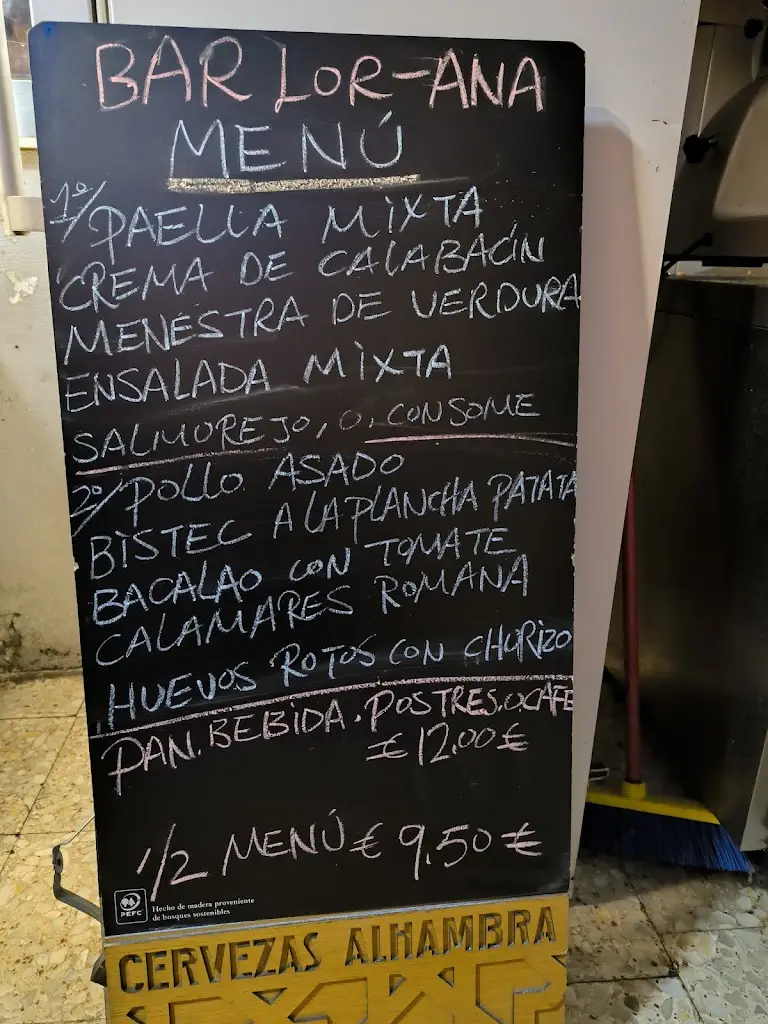 BAR LOR-ANA
MENÚ
1º/PAELLA MIXTA
CREMA DE CALABACÍN
MENESTRA DE VERDURA
ENSALADA MIXTA
SALMOREJO, O, CONSOME
2º/POLLO ASADO
BISTEC A LA PLANCHA PATATA
BACALAO CON TOMATE
CALAMARES ROMANA
HUEVOS ROTOS CON CHORIZO
PAN. BEBIDA. POSTRES.O CAFE
€ 12.00 €
1/2 MENÚ € 9.50 €
PEFC
Hecho de madera proveniente
de bosques sostenibles
CERVEZAS ALHAMBRA